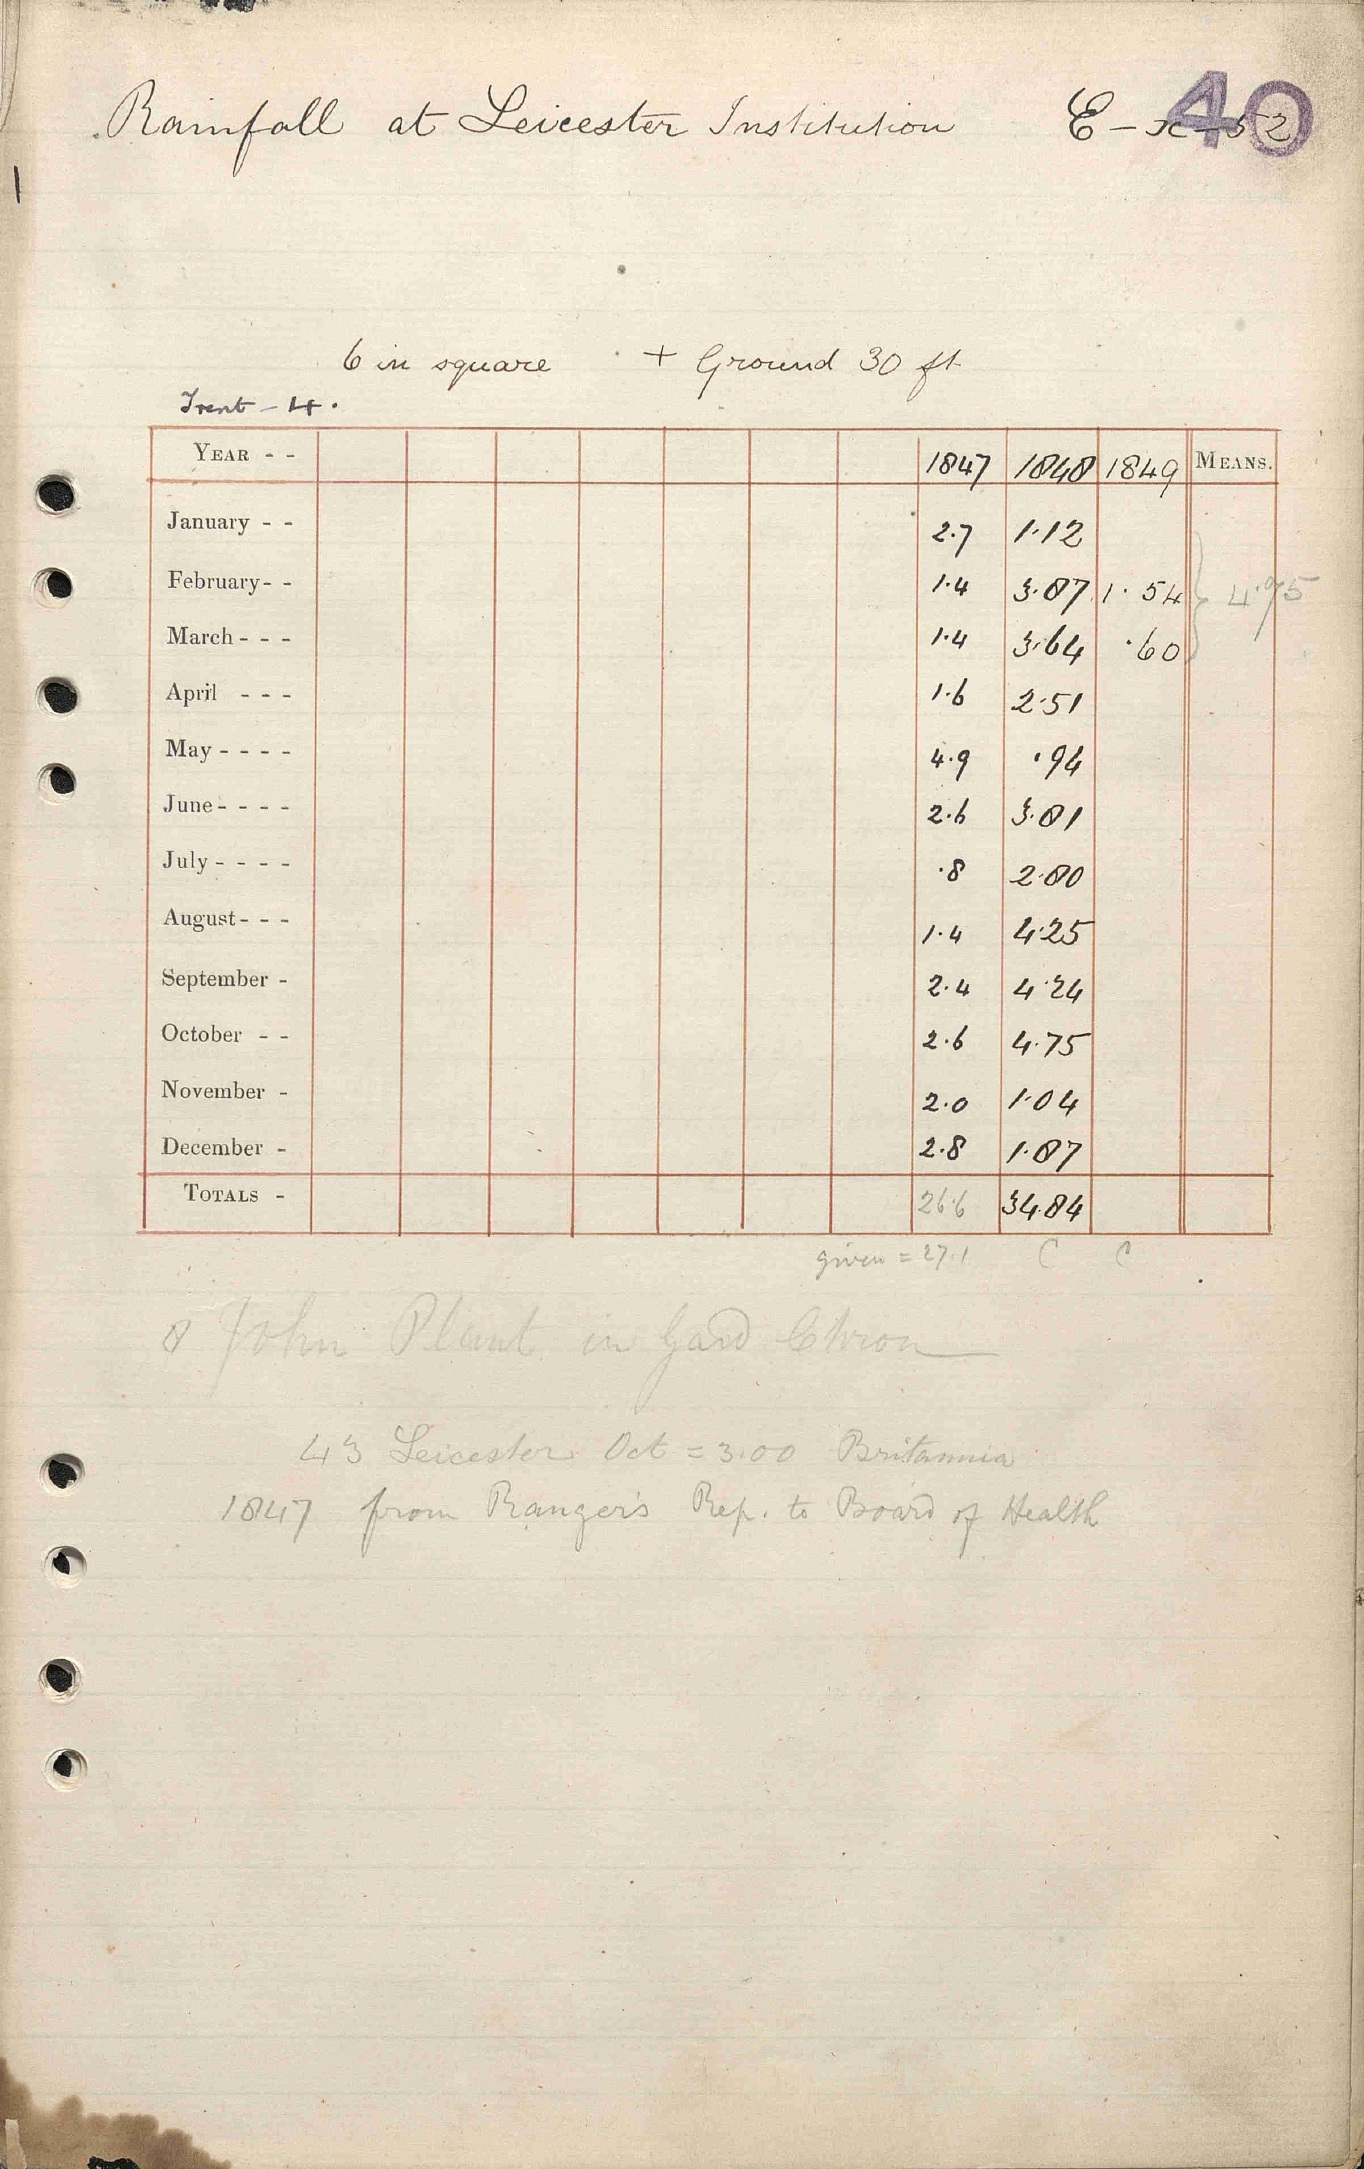 Rainfall at Leicester Institution E - x - 52
40
6 in square + Ground 30 ft
Trent - 4.
YEAR - - 1847 1848 1849 MEANS.
January - - 2.7 1.12
February - - 1.4 3.87 1.54 } 4.95
March - - - 1.4 3.64 .60
April - - - 1.6 2.51
May - - - - 4.9 .94
June - - - - 2.6 3.81
July - - - - .8 2.80
August - - - 1.4 4.25
September - 2.4 4.24
October - - 2.6 4.75
November - 2.0 1.04
December - 2.8 1.87
TOTALS - 26.6 34.84
given = 27.1 C C
8 John Plant in Gard Chron
43 Leicester Oct = 3.00 Britannia
1847 from Ranger's Rep. to Board of Health